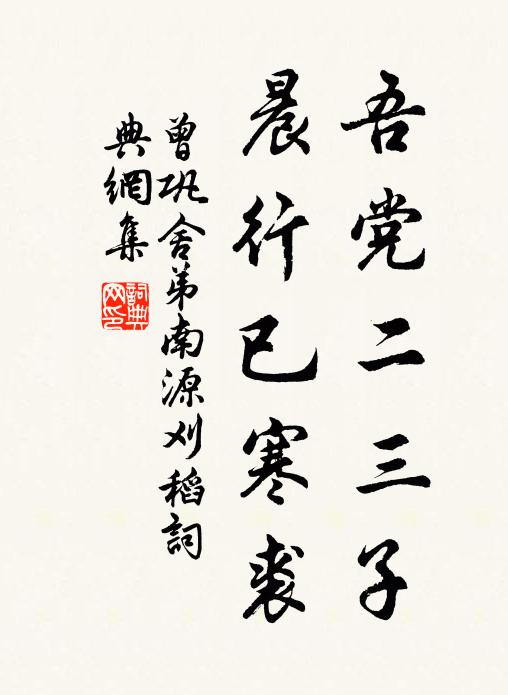 吾党二三子
晨行已寒裘
曾巩舍弟南源刈稻詞
典網集
詞典網印